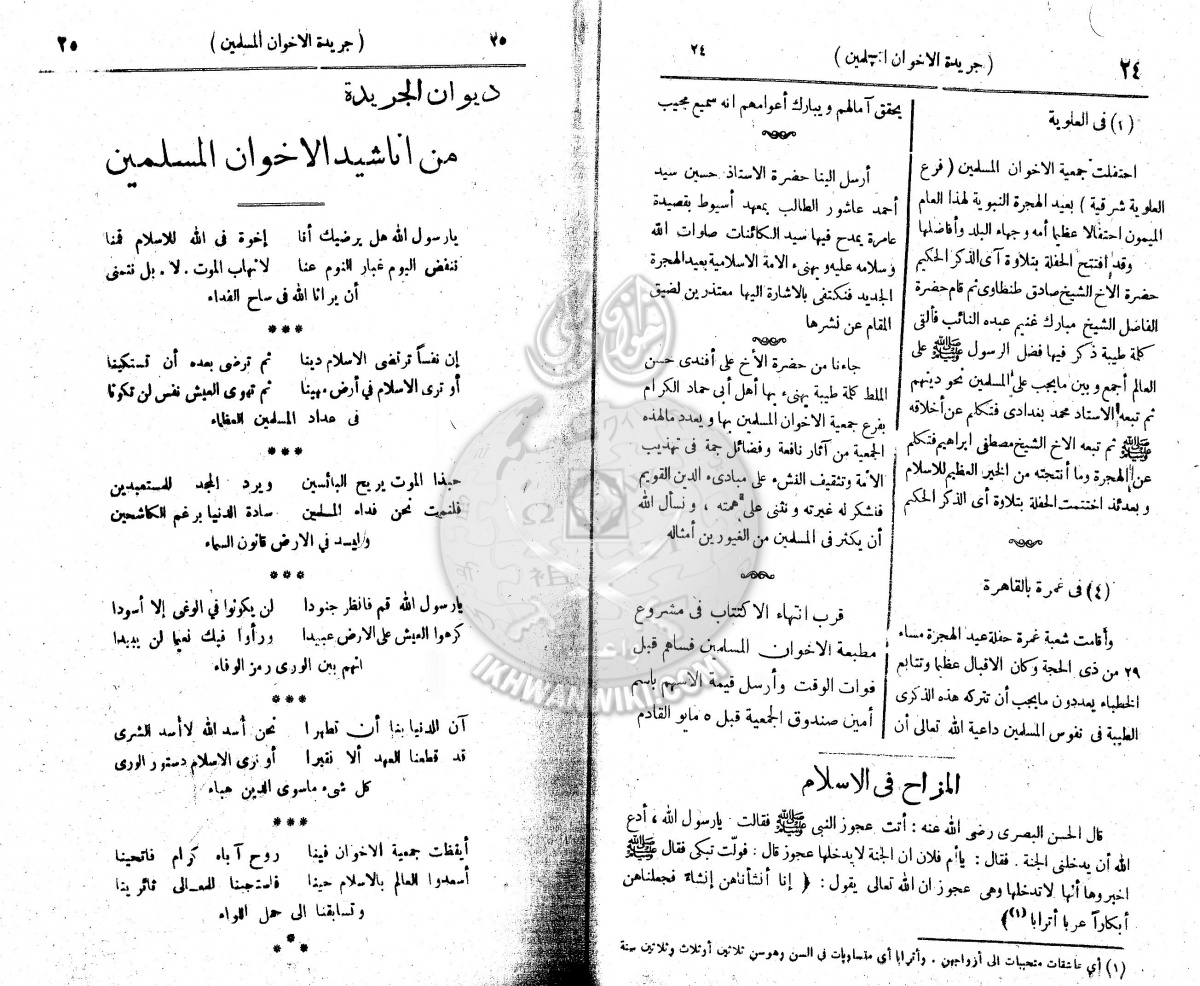 ٢٤
( جريدة الاخوان المسلمين )
٢٤
(١) فى العلوية
احتفلت جمعية الاخوان المسلمين ( فرع
العلوية شرقية ) بعيد الهجرة النبوية لهذا العام
الميمون احتفالا عظيما أمه وجهاء البلد وأفاضلها
وقد افتتح الحفلة بتلاوة آى الذكر الحكيم
حضرة الأخ الشيخ صادق طنطاوى ثم قام حضرة
الفاضل الشيخ مبارك غنيم عبده النائب فألقى
كلمة طيبة ذكر فيها فضل الرسول ﷺ على
العالم أجمع وبين مايجب على المسلمين نحو دينهم
ثم تبعه الاستاذ محمد بغدادى فتكلم عن أخلاقه
ﷺ ثم تبعه الاخ الشيخ مصطفى ابراهيم فتكلم
عن الهجرة وما أنتجته من الخير العظيم للاسلام
وبعدئذ اختتمت الحفلة بتلاوة آى الذكر الحكيم
(٤) فى غمرة بالقاهرة
وأقامت شعبة غمرة حفلة عيد الهجرة مساء
٢٩ من ذى الحجة وكان الاقبال عظيما وتتابع
الخطباء يعددون مايجب أن تتركه هذه الذكرى
الطيبة فى نفوس المسلمين داعية الله تعالى أن
يحقق آمالهم ويبارك أعوامهم انه سميع مجيب
أرسل الينا حضرة الاستاذ حسين سيد
أحمد عاشور الطالب بمعهد أسيوط بقصيدة
عامرة يمدح فيها سيد الكائنات صلوات الله
وسلامه عليه ويهنىء الامة الاسلامية بعيد الهجرة
الجديد فنكتفى بالاشارة اليها معتذرين لضيق
المقام عن نشرها
جاءنا من حضرة الأخ على أفندى حسن
الملط كلمة طيبة يهنىء بها أهل أبى حماد الكرام
بفرع جمعية الاخوان المسلمين بها ويعدد مالهذه
الجمعية من آثار نافعة وفضائل جمة فى تهذيب
الأمة وتثقيف النشء على مبادىء الدين القويم
فنشكر له غيرته ونثنى على همته ، ونسأل الله
أن يكثر فى المسلمين من الغيورين أمثاله
قرب انتهاء الاكتتاب فى مشروع
مطبعة الاخوان المسلمين فساهم قبل
فوات الوقت وأرسل قيمة الاسهم باسم
أمين صندوق الجمعية قبل ٥ مايو القادم
المزاح فى الاسلام
قال الحسن البصرى رضى الله عنه : أتت عجوز النبى ﷺ فقالت يارسول الله ، أدع
الله أن يدخلنى الجنة . فقال : ياأم فلان ان الجنة لايدخلها عجوز قال : فولّت تبكى فقال ﷺ
اخبروها أنها لاتدخلها وهى عجوز ان الله تعالى يقول : ﴿ إنا أنشأناهن إنشاء فجعلناهن
أبكاراً عربا أترابا (١)﴾
(١) أي عاشقات متحببات الى أزواجهن . وأترابا أي متساويات فى السن وهو سن ثلاثين أو ثلاث وثلاثين سنة
٢٥
( جريدة الاخوان المسلمين )
٢٥
ديوان الجريدة
من اناشيد الاخوان المسلمين
يارسول الله هل يرضيك أنا إخوة فى الله للاسلام قمنا
ننفض اليوم غبار النوم عنا لانهاب الموت . لا . بل نتمنى
أن يرانا الله فى ساح الفداء
***
إن نفساً ترتضى الاسلام دينا ثم ترضى بعده أن تستكينا
أو ترى الاسلام فى أرض مهينا ثم تهوى العيش نفس لن تكونا
فى عداد المسلمين العظماء
***
حبذا الموت يريح البائسين ويرد المجد للمستعبدين
فلنمت نحن فداء المسلمين سادة الدنيا برغم الكاشحين
وليسد في الارض قانون السماء
***
يارسول الله قم فانظر جنودا لن يكونوا في الوغى إلا أسودا
كرهوا العيش على الارض عبيدا ورأوا فيك نعيما لن يبيدا
انهم بين الورى رمز الوفاء
***
آن للدنيا بنا أن تطهرا نحن أسد الله لا أسد الشرى
قد قطعنا العهد ألا نقبرا أو نرى الاسلام دستور الورى
كل شىء ماسوى الدين هباء
***
أيقظت جمعية الاخوان فينا روح آباء كرام فاتحينا
أسعدوا العالم بالاسلام حينا فاستجبنا للمعالى ثائرينا
وتسابقنا الى حمل اللواء
***
IKHWANWIKI.COM